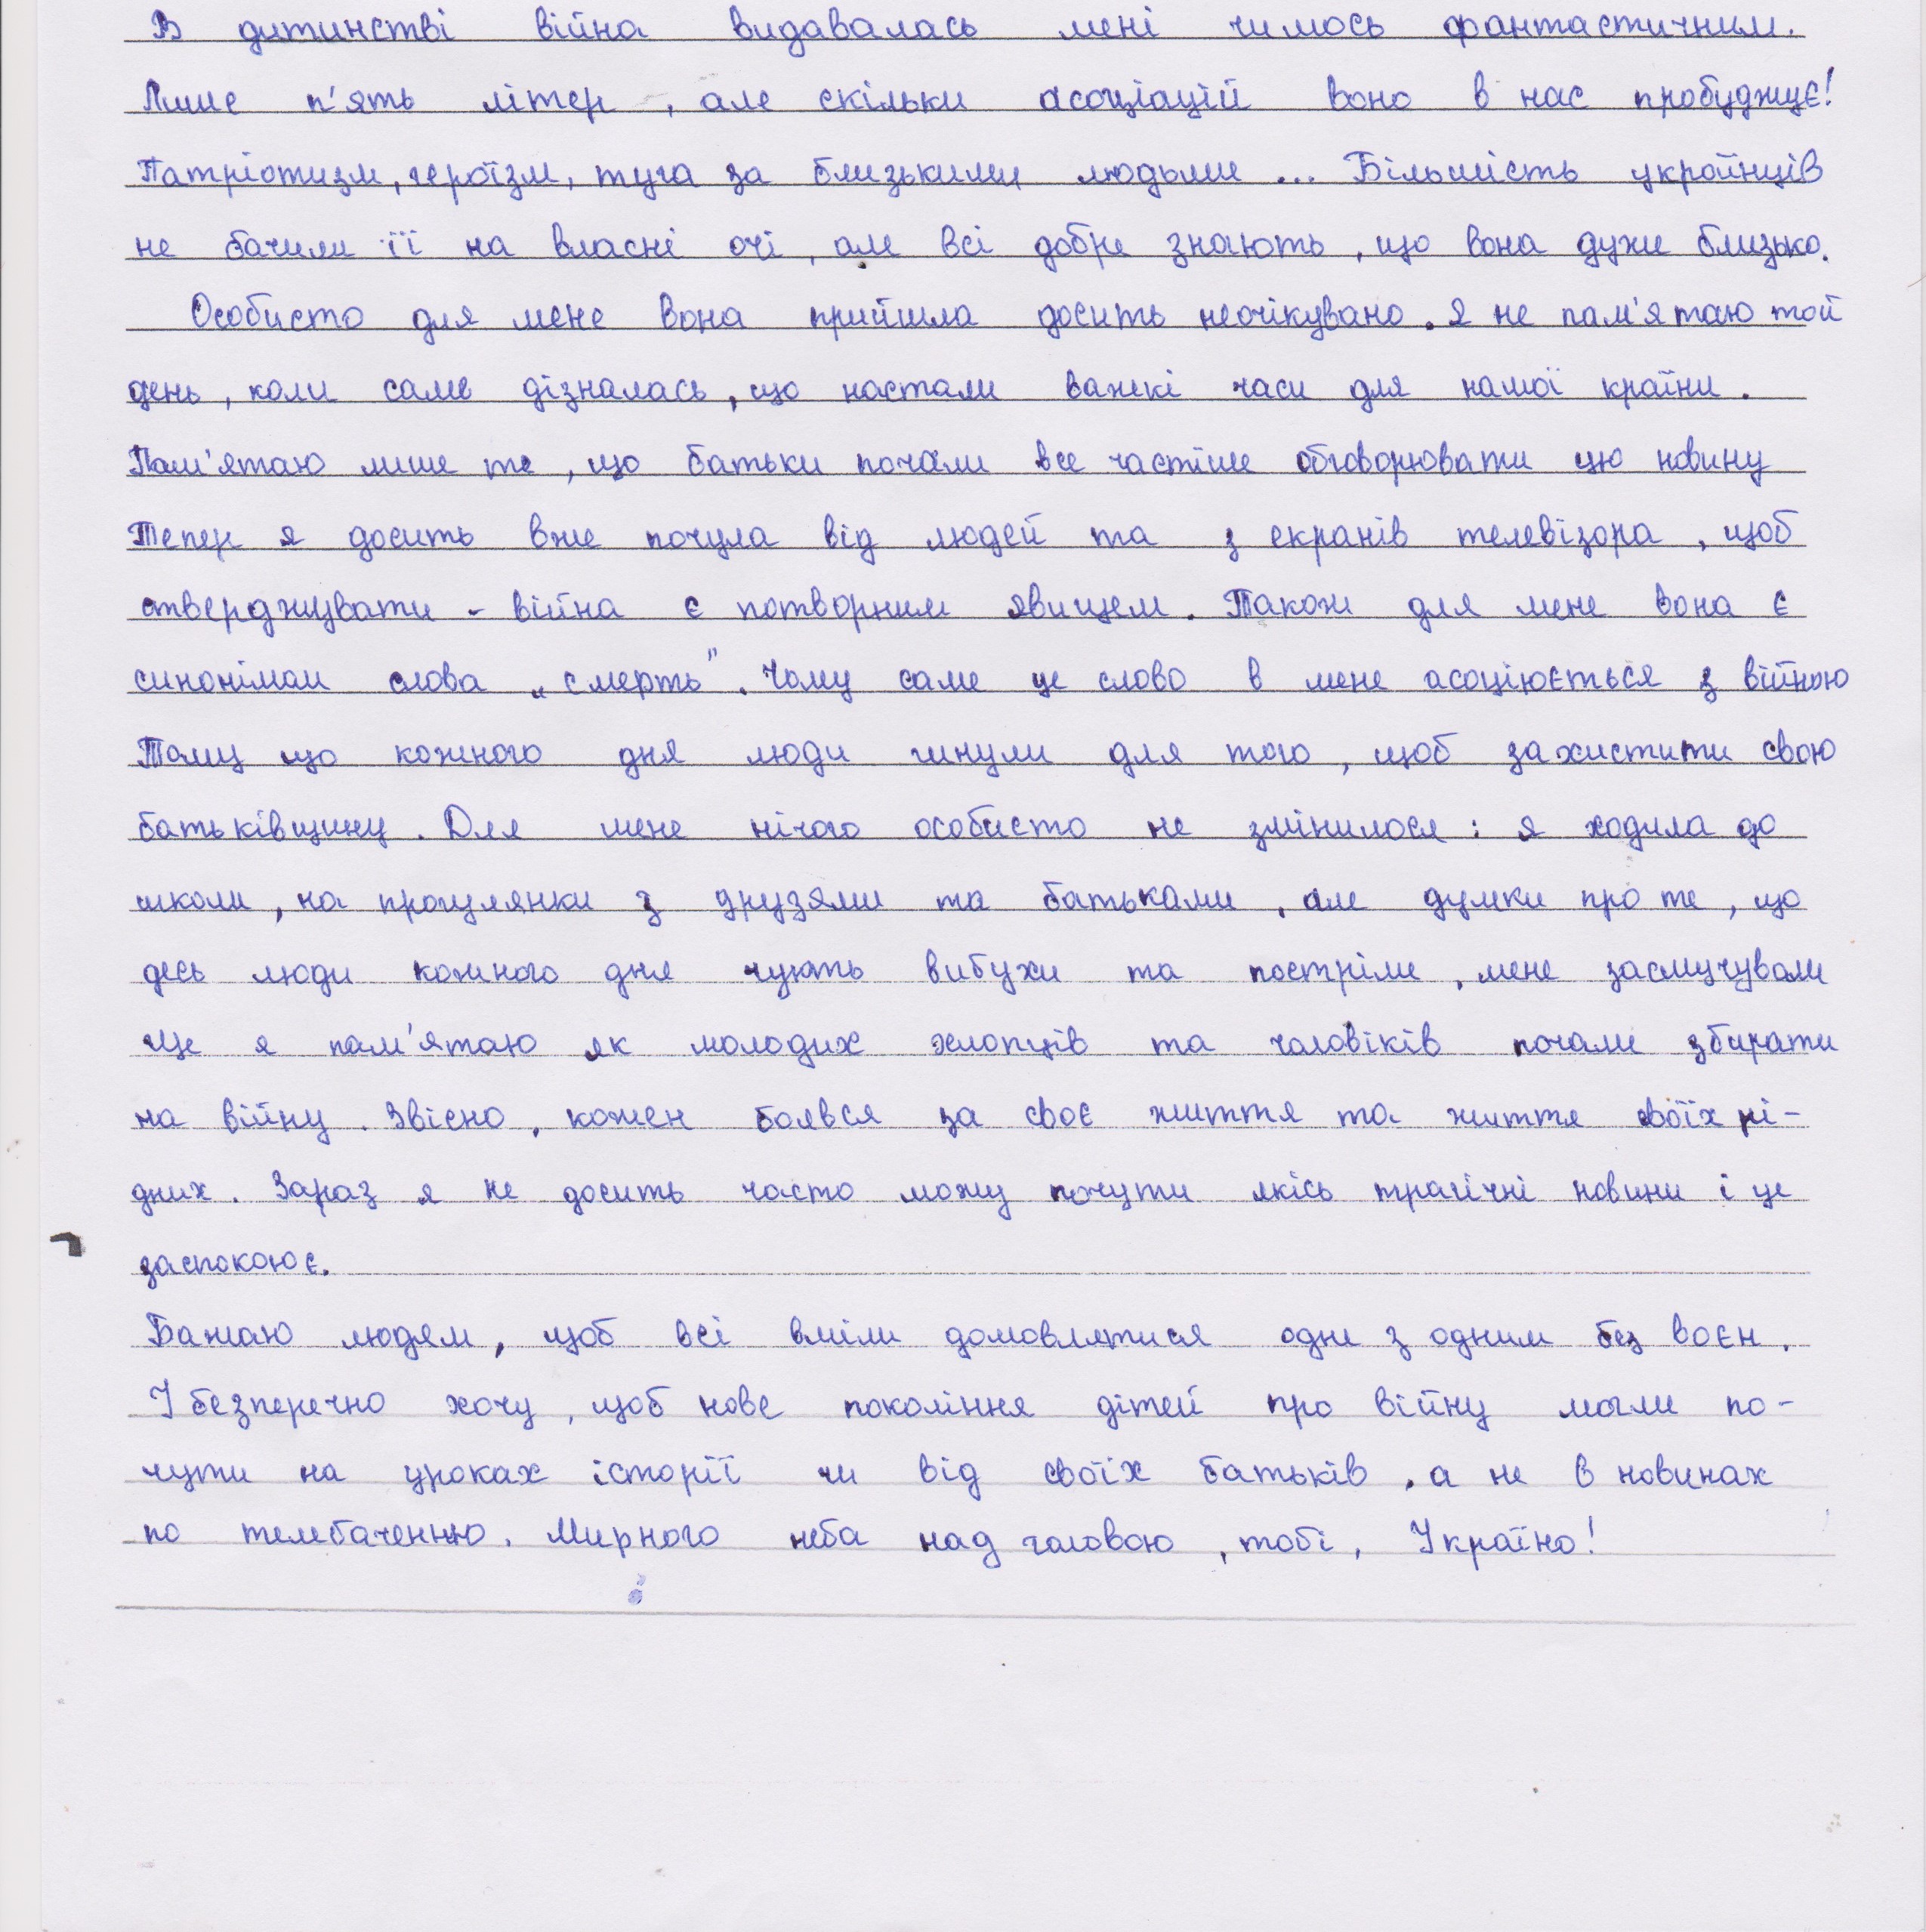 В дитинстві війна видавалась мені чимось фантастичним.
Лише п'ять літер, але скільки асоціацій воно в нас пробуджує!
Патріотизм, героїзм, туга за близькими людьми ... Більшість українців
не бачили її на власні очі, але всі добре знають, що вона дуже близько.
Особисто для мене вона прийшла досить неочікувано. Я не пам'ятаю той
день, коли саме дізналась, що настали важкі часи для нашої країни.
Пам'ятаю лише те, що батьки почали все частіше обговорювати цю новину
Тепер я досить вже почула від людей та з екранів телевізора, щоб
стверджувати - війна є потворним явищем. Також для мене вона є
синонімом слова „смерть". Чому саме це слово в мене асоціюється з війною
Тому що кожного дня люди гинули для того, щоб захистити свою
батьківщину. Для мене нічого особисто не змінилося: я ходила до
школи, на прогулянки з друзями та батьками, але думки про те, що
десь люди кожного дня чують вибухи та постріли, мене засмучували
Ще я пам'ятаю як молодих хлопців та чоловіків почали збирати
на війну. Звісно, кожен боявся за своє життя та життя своїх рі-
дних. Зараз я не досить часто можу почути якісь трагічні новини і це
заспокоює.
Бажаю людям, щоб всі вміли домовлятися одне з одним без воєн.
І безперечно хочу, щоб нове покоління дітей про війну могли по-
чути на уроках історії чи від своїх батьків, а не в новинах
по телебаченню. Мирного неба над головою, тобі, Україно!